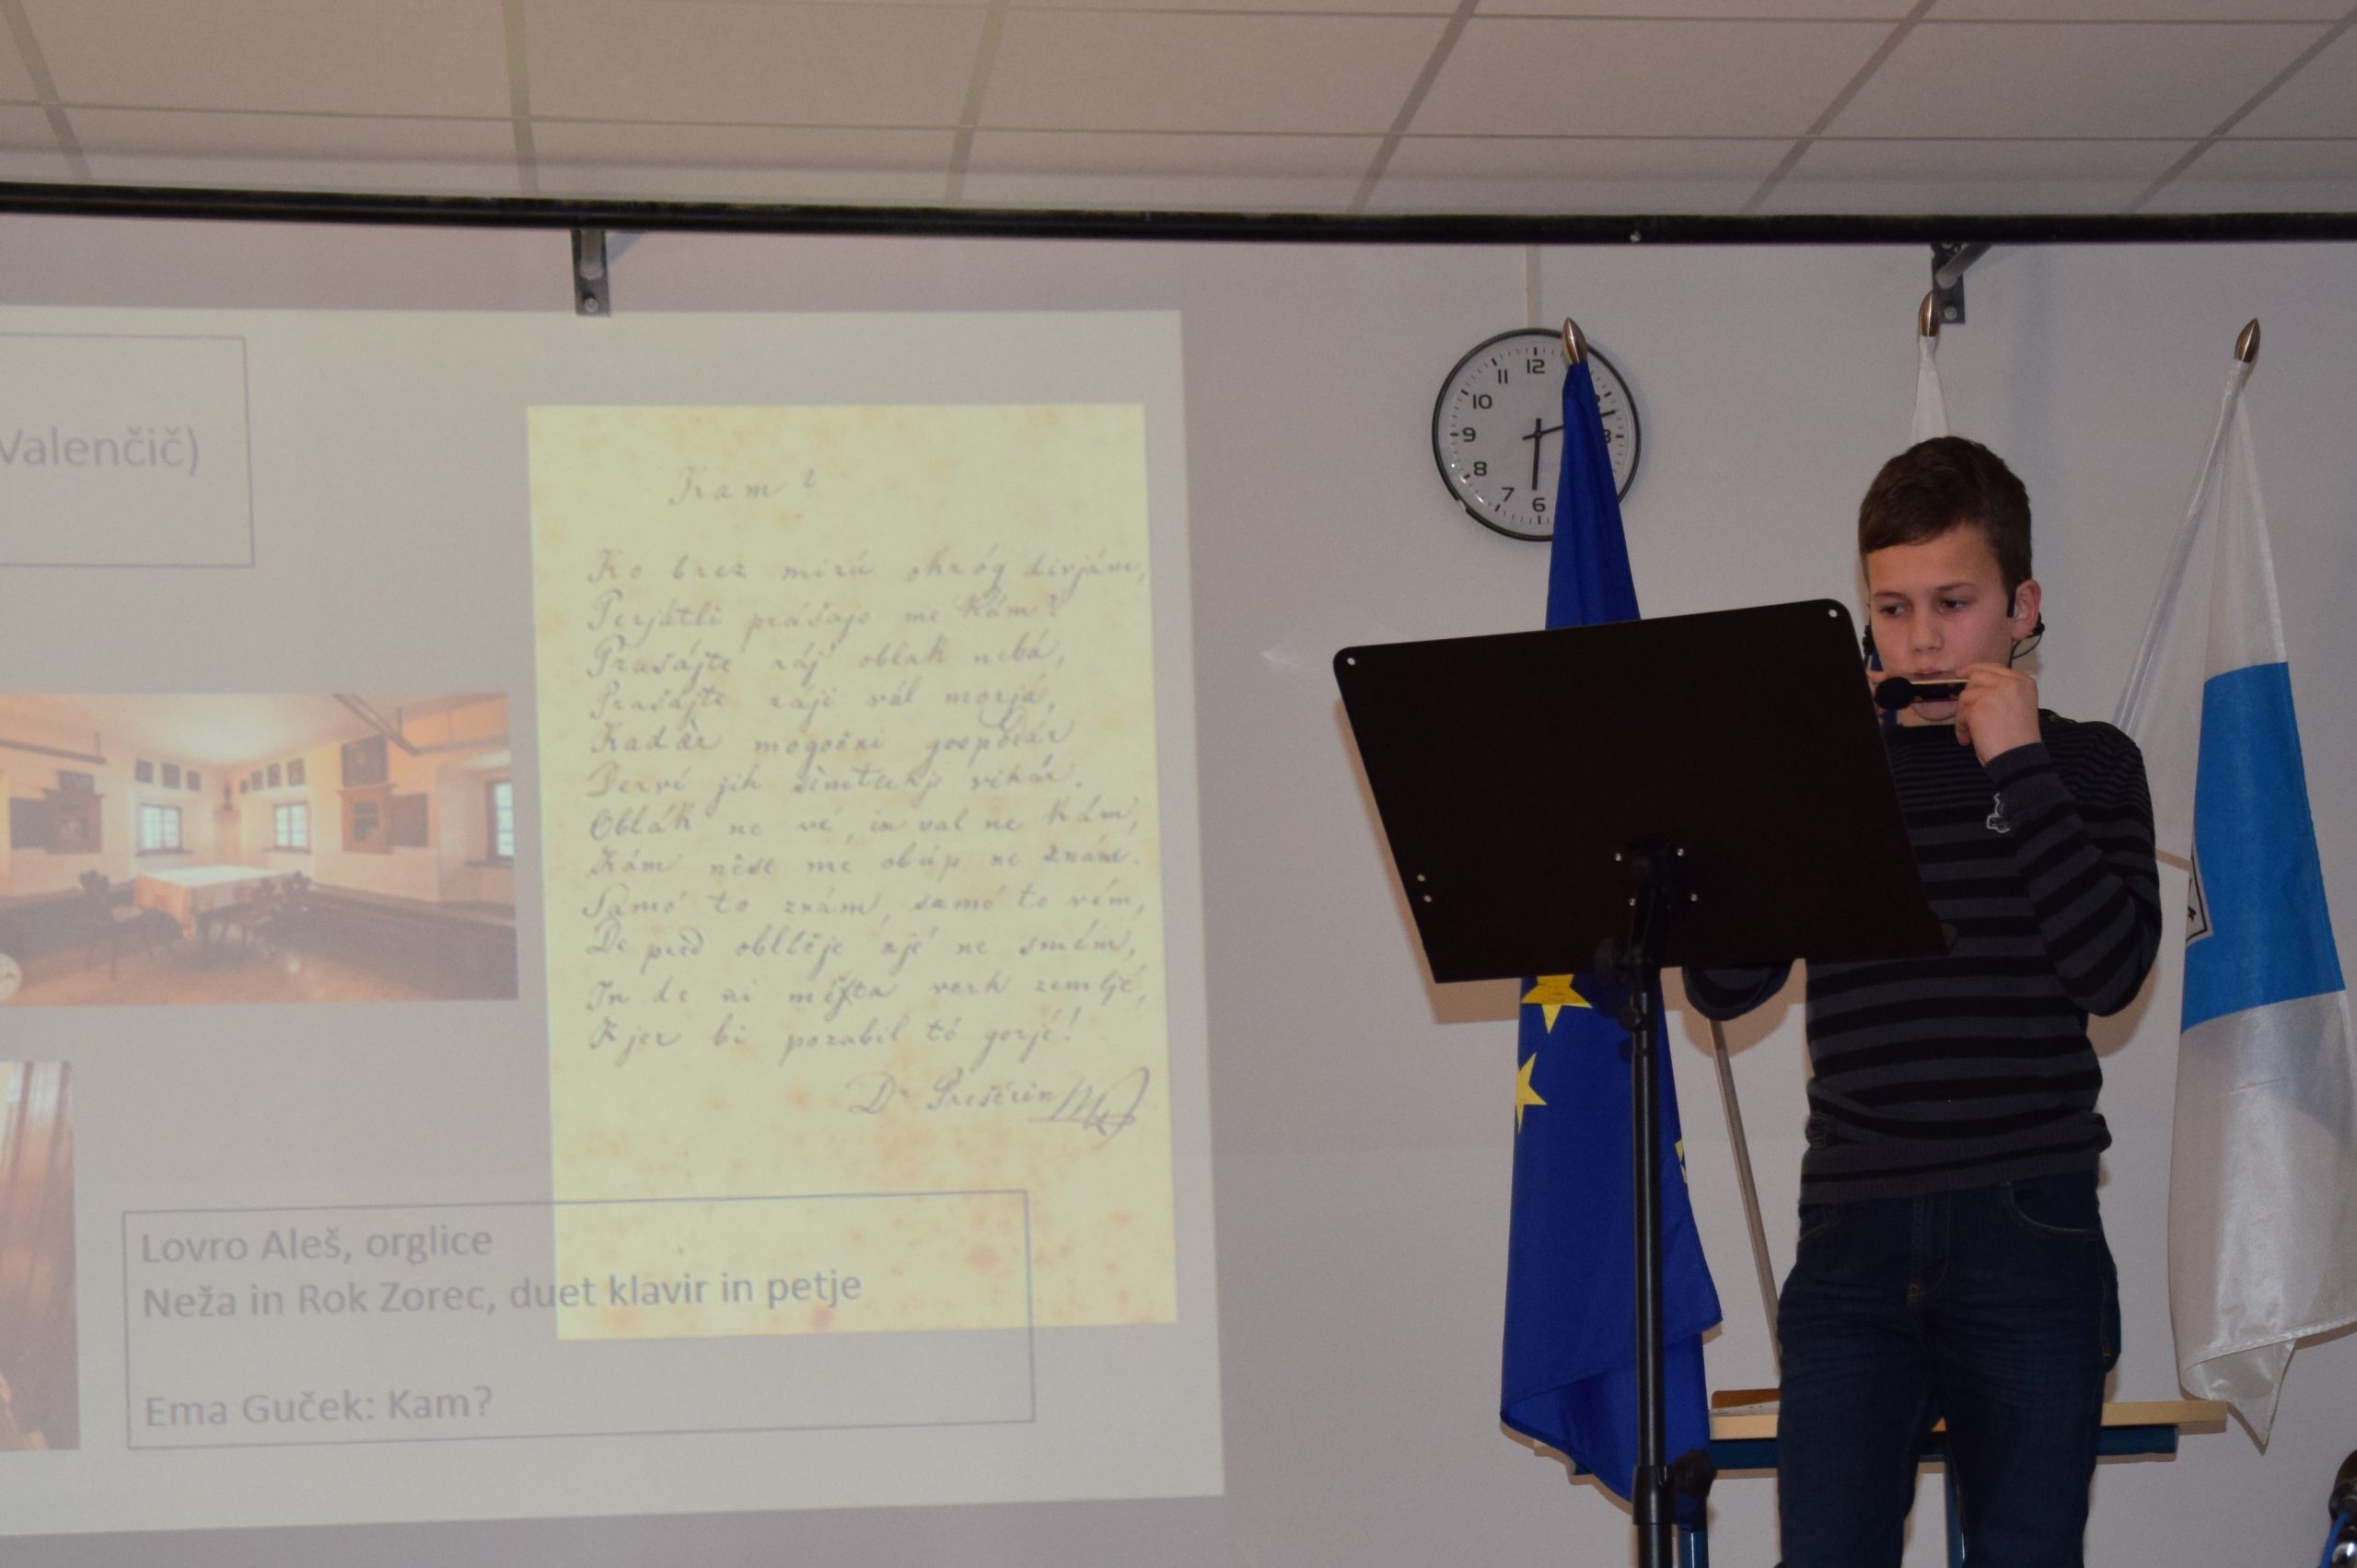 Valenčič)
Kam?
Ko brez mirú okróg divjám,
Perjátli prášajo me kám?
Prašájte ráj' oblak nebá,
Prašájte ráji vál morjá,
Kadàr mogočni gospodár
Derví jih sèmtertjè vihár.
Oblák ne vé, in val ne kám,
Kám nêse me obúp ne znám.
Samó to znám, samó to vém,
De pred obllčje njé ne smém,
In de ni mésta verh zemljé,
Kjer bi pozabil tó gorjé!
Dr Prešérin
Lovro Aleš, orglice
Neža in Rok Zorec, duet klavir in petje
Ema Guček: Kam?
12
11
10
9
8
7
6